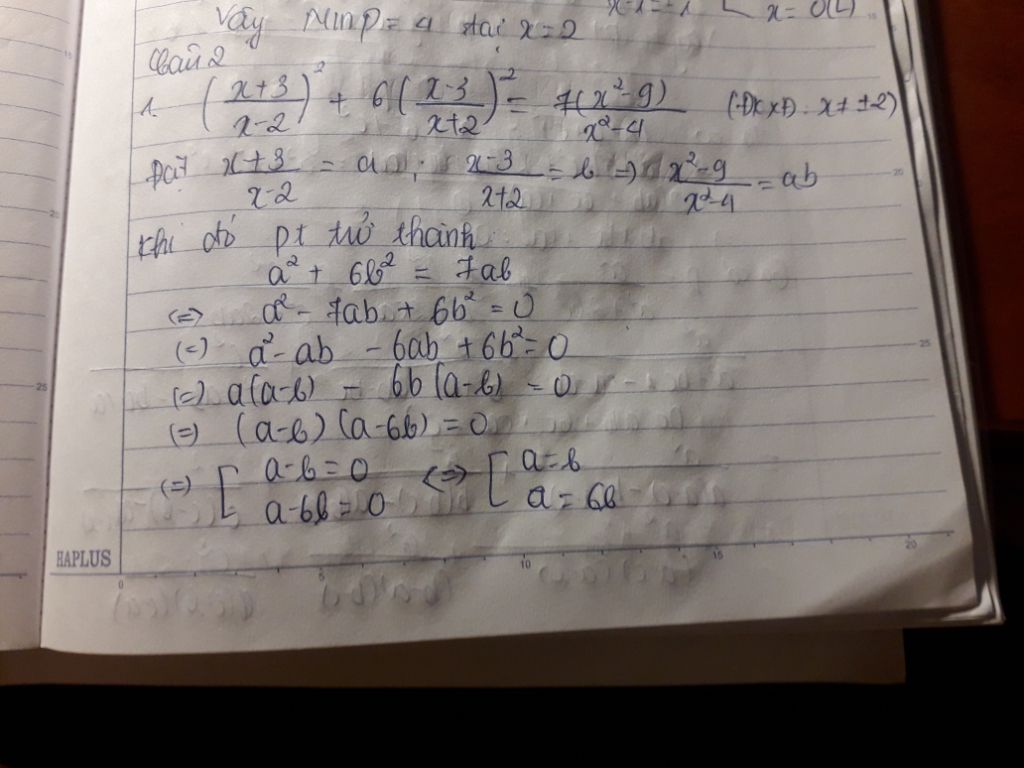 Vậy Min P = 4 tại x = 2
x = 0 (L)
Câu 2
1. ((x+3)/(x-2))² + 6((x-3)/(x+2))² = 7(x²-9)/(x²-4) (ĐKXĐ: x ≠ ±2)
Đặt (x+3)/(x-2) = a ; (x-3)/(x+2) = b => (x²-9)/(x²-4) = ab
Khi đó pt trở thành
a² + 6b² = 7ab
<=> a² - 7ab + 6b² = 0
(=) a² - ab - 6ab + 6b² = 0
(=) a(a-b) - 6b(a-b) = 0
(=) (a-b)(a-6b) = 0
(=) [ a-b = 0 <=> [ a = b
a-6b = 0 a = 6b
HAPLUS
0 5 10 15 20